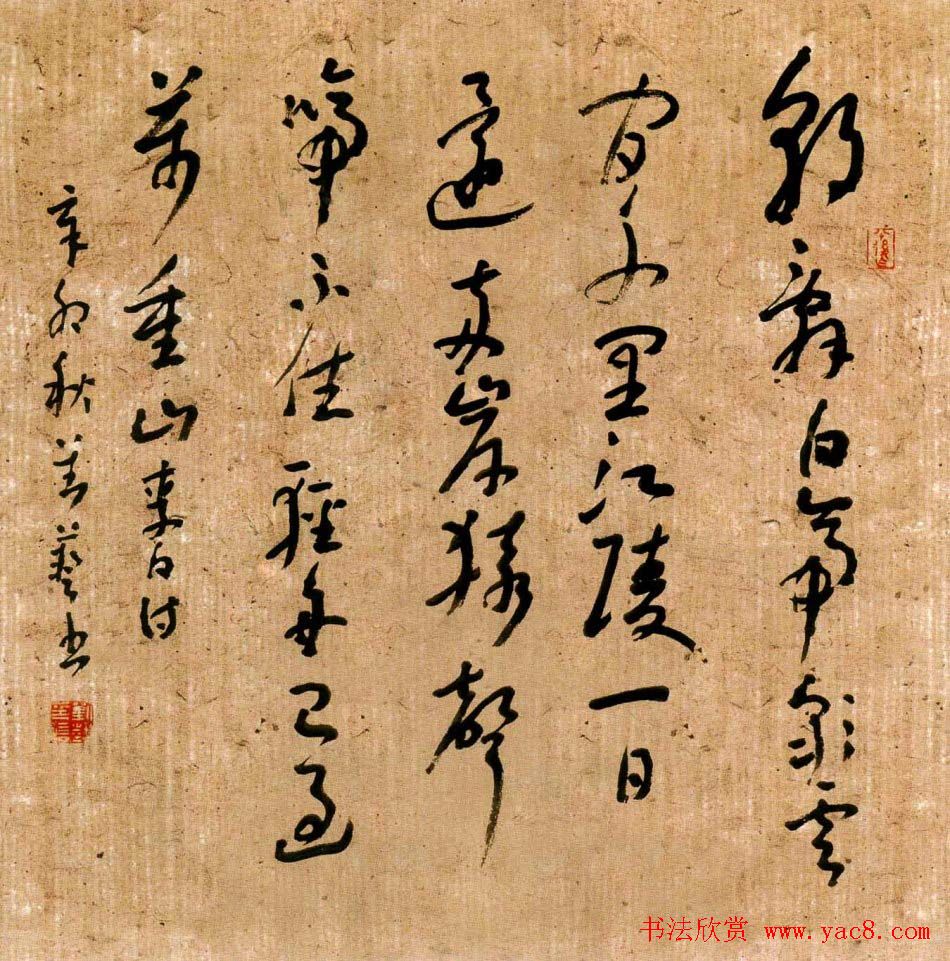 朝辭白帝彩雲
間千里江陵一日
還兩岸猿聲
啼不住輕舟已過
萬重山李白詩
辛卯秋藝書
书法欣赏 www.yac8.com